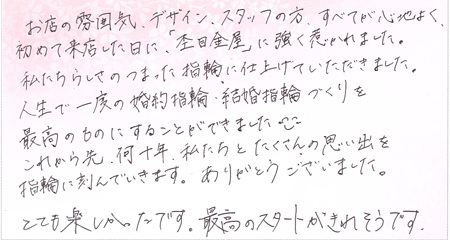 お店の雰囲気、デザイン、スタッフの方、すべてが心地よく、
初めて来店した日に、「杢目金屋」に強く惹かれました。
私たちらしさのつまった指輪に仕上げていただきました。
人生で一度の婚約指輪・結婚指輪づくりを
最高のものにすることができました
これから先、何十年、私たちとたくさんの思い出を
指輪に刻んでいきます。ありがとうございました。
とても楽しかったです。最高のスタートがきれそうです.